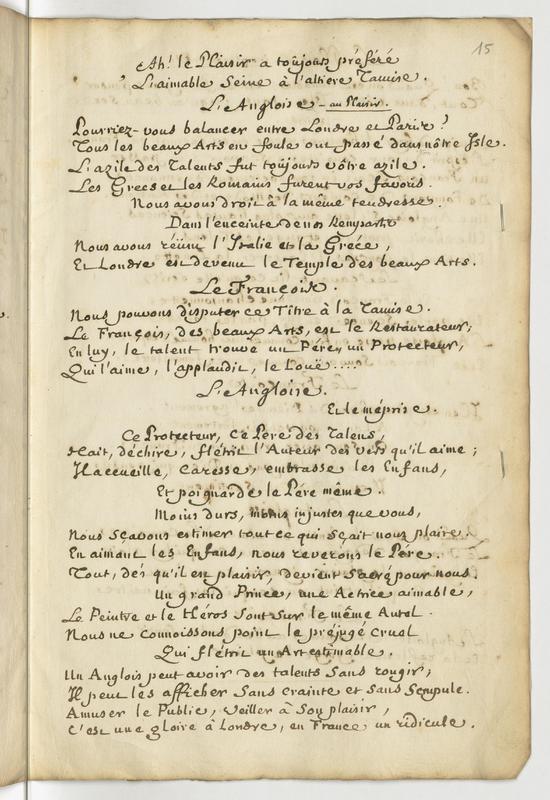 15
Ah! le Plaisir a toûjours préféré
L'aimable Seine à l'altiere Tamise.
L'Angloise - au Plaisir.
Pourriez-vous balancer entre Londre et Paris?
Tous les beaux Arts en foule ont passé dans nôtre Isle.
L'azile des Talents fut toûjours vôtre azile.
Les Grecs et les Romains furent vos favoris.
Nous avons droit à la même tendresse.
Dans l'enceinte de nos Remparts
Nous avons réüni l'Italie et la Grece,
Et Londre est devenu le Temple des beaux Arts.
Le François.
Nous pouvons disputer ce Titre à la Tamise.
Le François, des beaux Arts, est le Restaurateur;
En luy, le talent trouve un Pére, un Protecteur,
Qui l'aime, l'applaudit, le Louë.....
L'Angloise.
Et le méprise.
Ce Protecteur, Ce Pere des Talens,
Hait, déchire, flétrit l'Auteur des vers qu'il aime;
Il accueille, Caresse, embrasse les Enfans,
Et poignarde le Pére même.
Moins durs, moins injustes que vous,
Nous sçavons estimer tout ce qui sçait nous plaire.
En aimant les Enfans, nous reverons le Pére.
Tout, dés qu'il est plaisir, devient Sacré pour nous.
Un grand Prince, une Actrice aimable,
Le Peintre et le Héros sont sur le même Autel.
Nous ne connoissons point le préjugé cruel
Qui flétrit un Art estimable.
Un Anglois peut avoir des talents sans rougir;
Il peut les afficher sans crainte et sans Scrupule.
Amuser le Public, veiller à son plaisir,
C'est une gloire à Londre, en France un ridicule.